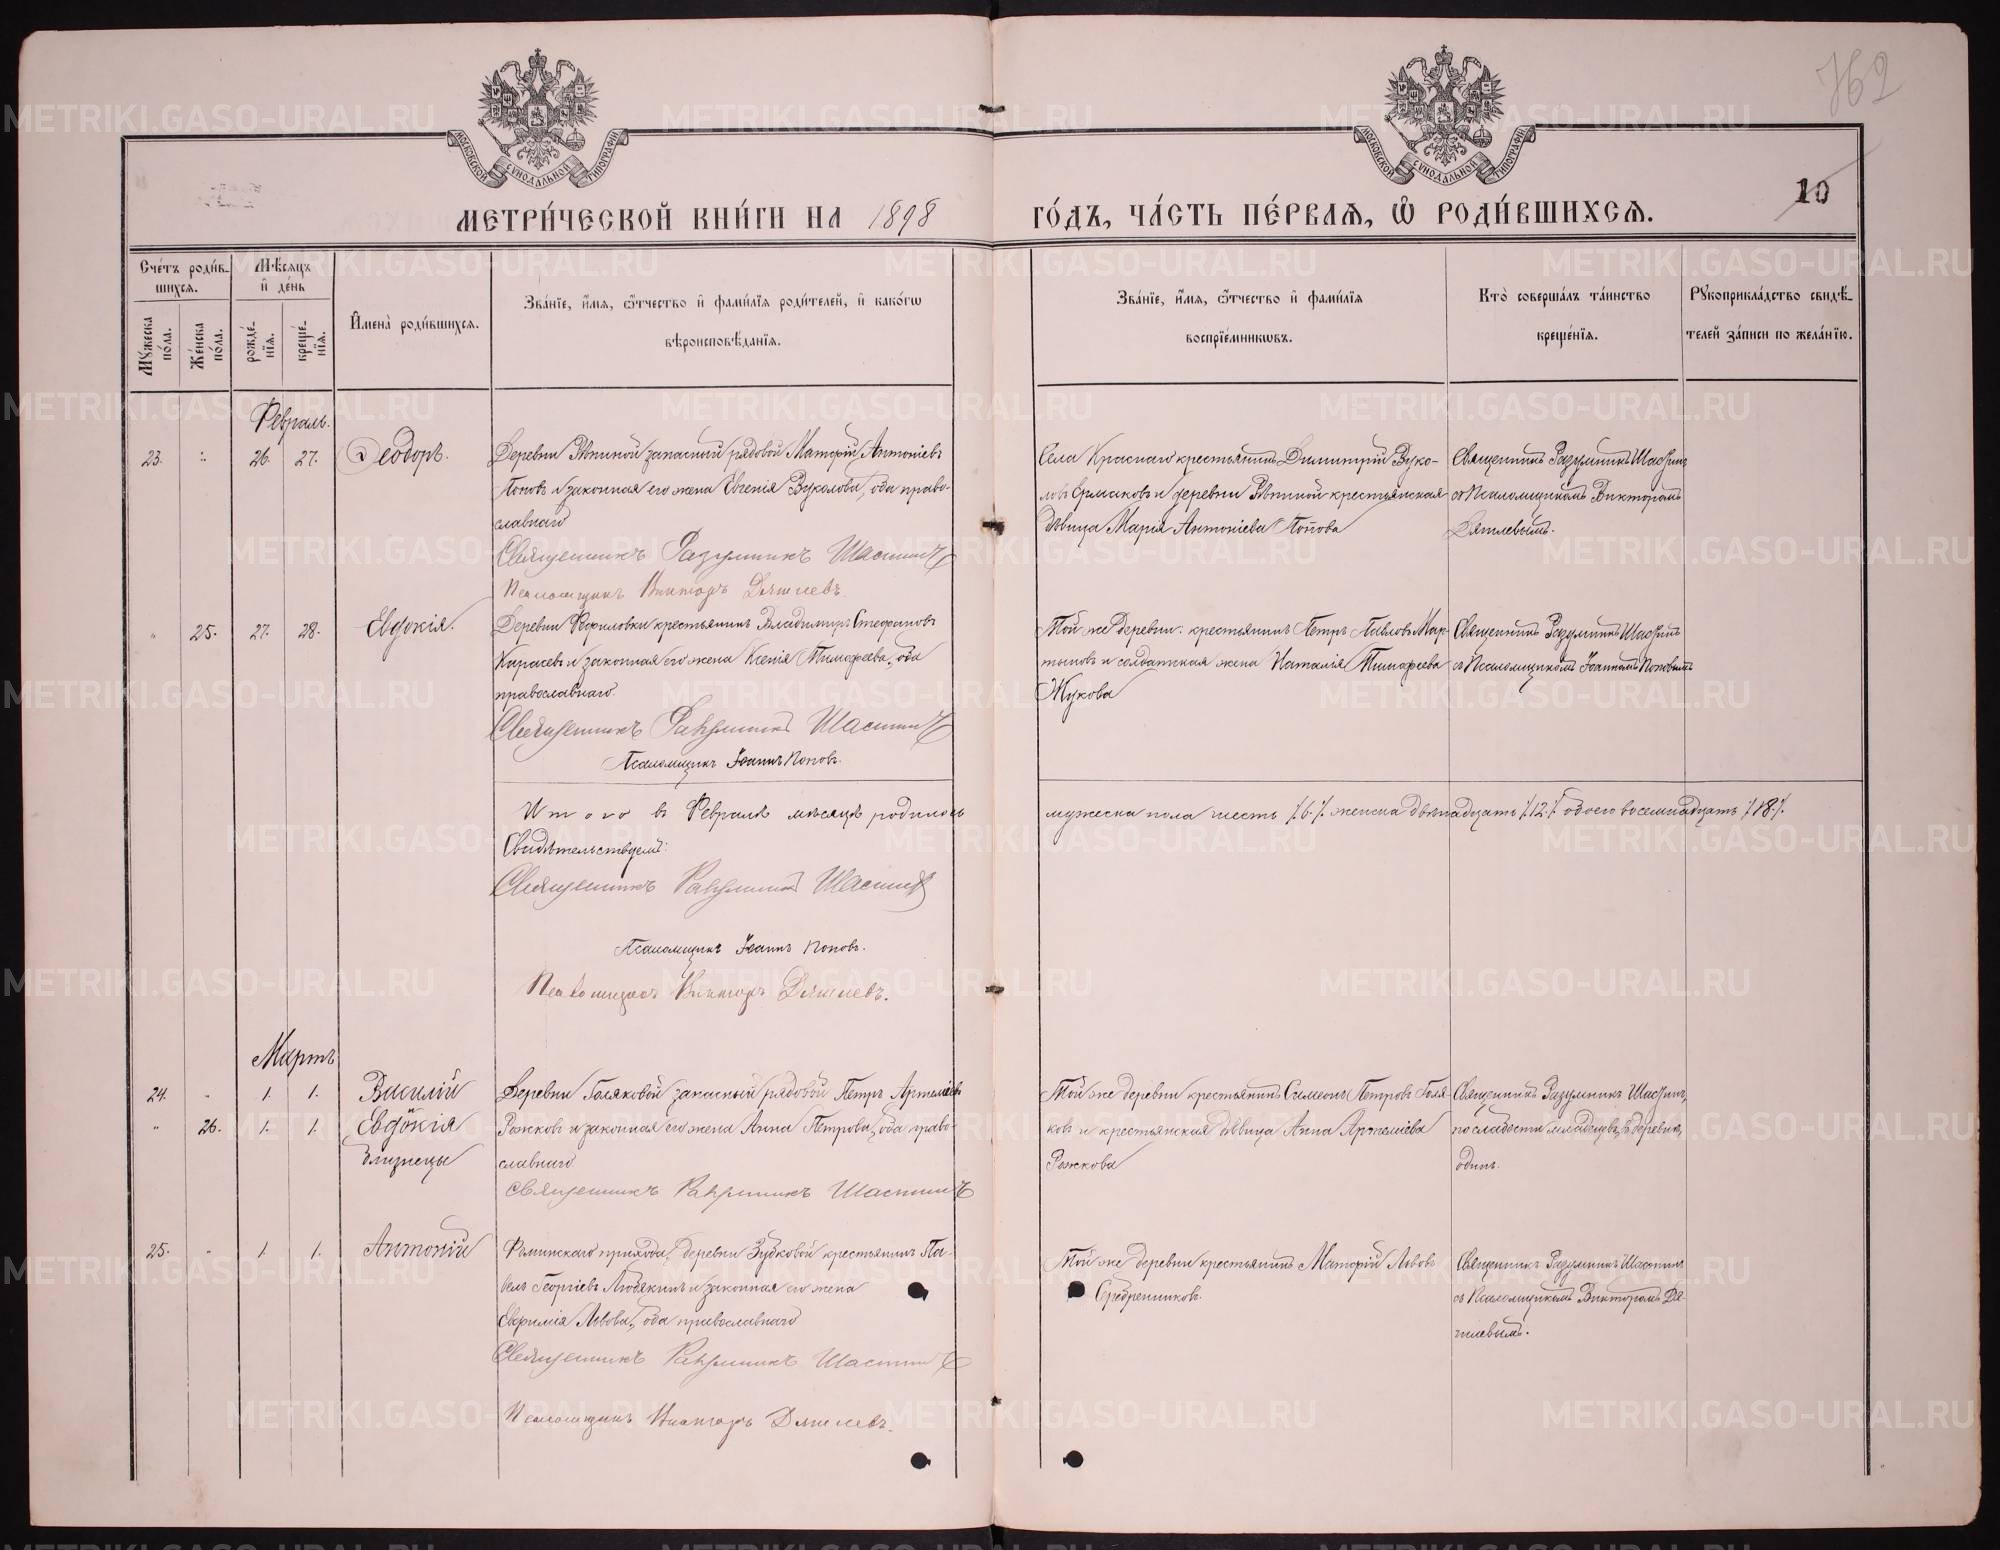 762
10
МОСКОВСКОЙ СѴНОДАЛЬНОЙ ТИПОГРАФІИ
МОСКОВСКОЙ СѴНОДАЛЬНОЙ ТИПОГРАФІИ
МЕТРИ́ЧЕСКОЙ КНИ́ГИ НА 1898
ГО́ДЪ, ЧА́СТЬ ПЕ́РВАЯ, Ѿ РОДИ́ВШИХСЯ.
Сче́тъ роди́в-
шихся.
Мѣсяцъ
и день
Мужеска пола.
Женска пола.
рожде́-
нія.
креще́-
нія.
Имена̀ роди́вшихся.
Зва́ніе, и́мя, ѻтчество и фами́лія роди́телей, и како́гѡ
вѣроисповѣ́данія.
Зва́ніе, и́мя, ѻтчество и фами́лія
воспріе́мникѡвъ.
Кто̀ соверша́лъ та́инство
креще́нія.
Рукоприкла́дство свидѣ́-
телей за́писи по жела́нію.
Февраль.
23. 26. 27. Ѳеодоръ.
Деревни Рѣпиной запасный рядовой Маторій Антоніевъ
Поповъ и законная его жена Евгенія Вуколова, оба право-
славнаго
Священникъ Разумникъ Шастинъ
Псаломщикъ Викторъ Дягилевъ.
Села Краснаго крестьянинъ Димитрій Вуко-
ловъ Ермаковъ и деревни Рѣпиной крестьянская
дѣвица Марія Антоніева Попова
Священникъ Разумникъ Шастинъ
съ Псаломщикомъ Викторомъ
Дягилевымъ.
25. 27. 28. Евдокія.
Деревни крестьянинъ Владиміръ Стефановъ
Карасевъ и законная его жена Ксенія Тимофеева, оба
православнаго
Священникъ Разумникъ Шастинъ
Псаломщикъ Іоаннъ Поповъ.
Той же деревни крестьянинъ Петръ Павловъ Мар-
тыновъ и солдатская жена Наталія Тимофеева
Жукова
Священникъ Разумникъ Шастинъ
съ Псаломщикомъ Іоанномъ Поповымъ
Итого въ Февралѣ мѣсяцѣ родилось
мужеска пола шесть /6./ женска двѣнадцать /12./ обоего восемнадцать /18./
Свидѣтельствуемъ:
Священникъ Разумникъ Шастинъ
Псаломщикъ Іоаннъ Поповъ.
Псаломщикъ Викторъ Дягилевъ.
Мартъ
24. 1. 1. Василій
26. 1. 1. Евдокія
близнецы
Деревни Голяковой запасный рядовой Петръ Артеміевъ
Рожковъ и законная его жена Анна Петрова, оба право-
славнаго
Священникъ Разумникъ Шастинъ
Той же деревни крестьянинъ Симеонъ Петровъ Голя-
ковъ и крестьянская дѣвица Анна Артеміева
Рожкова
Священникъ Разумникъ Шастинъ,
по слабости младенцевъ, въ деревнѣ,
одинъ.
25. 1. 1. Антоній
Фоминскаго прихода, деревни Зубковой крестьянинъ Па-
велъ Георгіевъ и законная его жена
Евфимія Львова, оба православнаго
Священникъ Разумникъ Шастинъ
Псаломщикъ Викторъ Дягилевъ.
Той же деревни крестьянинъ Маторій Львовъ
Серебренниковъ.
Священникъ Разумникъ Шастинъ
съ Псаломщикомъ Викторомъ Дя-
гилевымъ.
METRIKI.GASO-URAL.RU